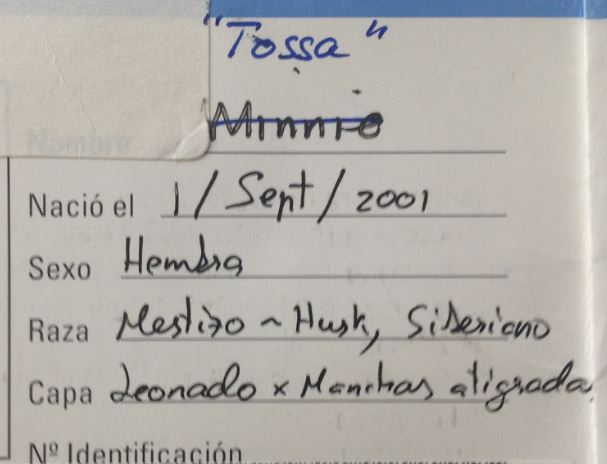 "Tossa"
Nombre Minnie
Nació el 1/Sept/2001
Sexo Hembra
Raza Mestizo ~ Husk, Siberiano
Capa Leonado x Manchas atigrada
Nº Identificación